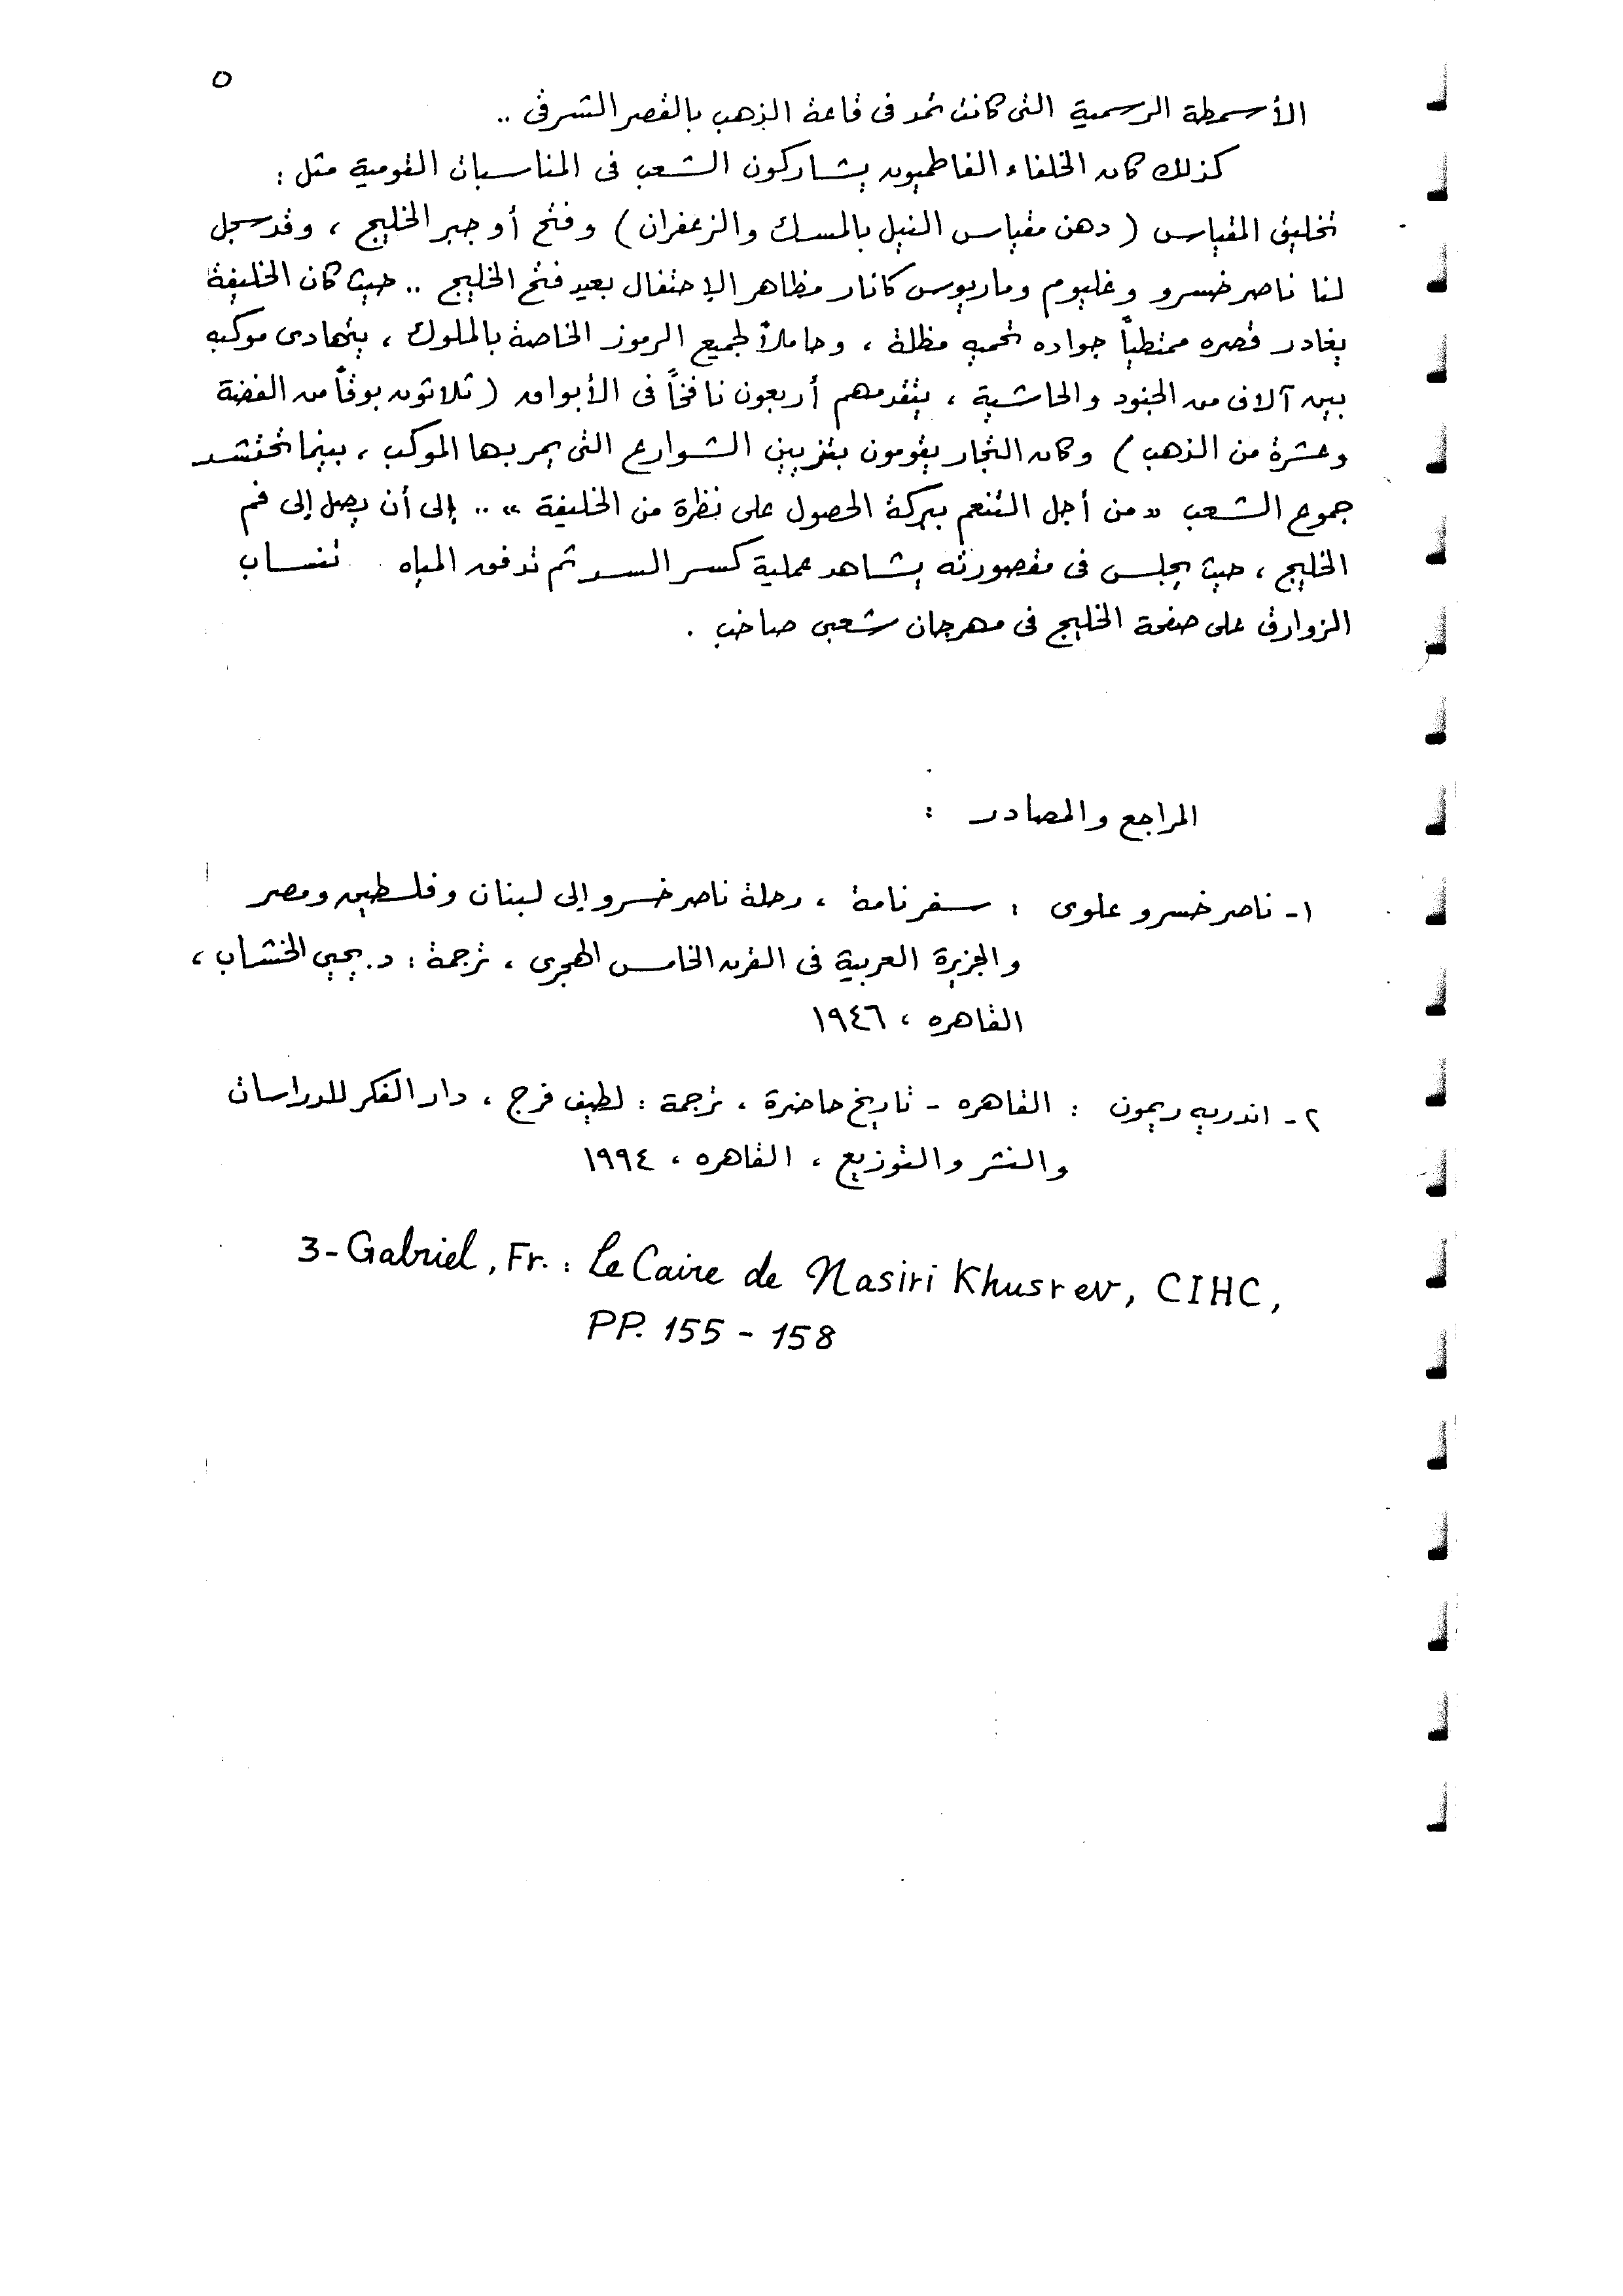 ٥
الأسمطة الرسمية التى كانت تمد فى قاعة الذهب بالقصر الشرقى ..
كذلك كان الخلفاء الفاطميون يشاركون الشعب فى المناسبات القومية مثل :
تخليق المقياس ( دهن مقياس النيل بالمسك والزعفران ) وفتح أو جبر الخليج ، وقد سجل
لنا ناصر خسرو وغليوم وماريوس كانار مظاهر الإحتفال بعيد فتح الخليج .. حيث كان الخليفة
يغادر قصره ممتطياً جواده تحميه مظلة ، وحاملاً لجميع الرموز الخاصة بالملوك ، يتهادى موكبه
بين آلاف من الجنود والحاشية ، يتقدمهم أربعون نافخاً فى الأبواق ( ثلاثون بوقاً من الفضة
وعشرة من الذهب ) وكان التجار يقومون بتزيين الشوارع التى يمر بها الموكب ، بينما تحتشد
جموع الشعب « من أجل التنعم ببركة الحصول على نظرة من الخليفة » .. إلى أن يصل إلى فم
الخليج ، حيث يجلس فى مقصورته يشاهد عملية كسر السد ثم تدفق المياه تنساب
الزوارق على صفحة الخليج فى مهرجان شعبى صاخب .
المراجع والمصادر :
١- ناصر خسرو علوى : سفرنامة ، رحلة ناصر خسرو إلى لبنان وفلسطين ومصر
والجزيرة العربية فى القرن الخامس الهجرى ، ترجمة : د. يحيى الخشاب ،
القاهره ، ١٩٤٦
٢- اندريه ريمون : القاهره - تاريخ حاضرة ، ترجمة : لطيف فرج ، دار الفكر للدراسات
والنشر والتوزيع ، القاهره ، ١٩٩٤
3-Gabriel, Fr. : Le Caire de Nasiri Khusrev, CIHC,
PP. 155 - 158